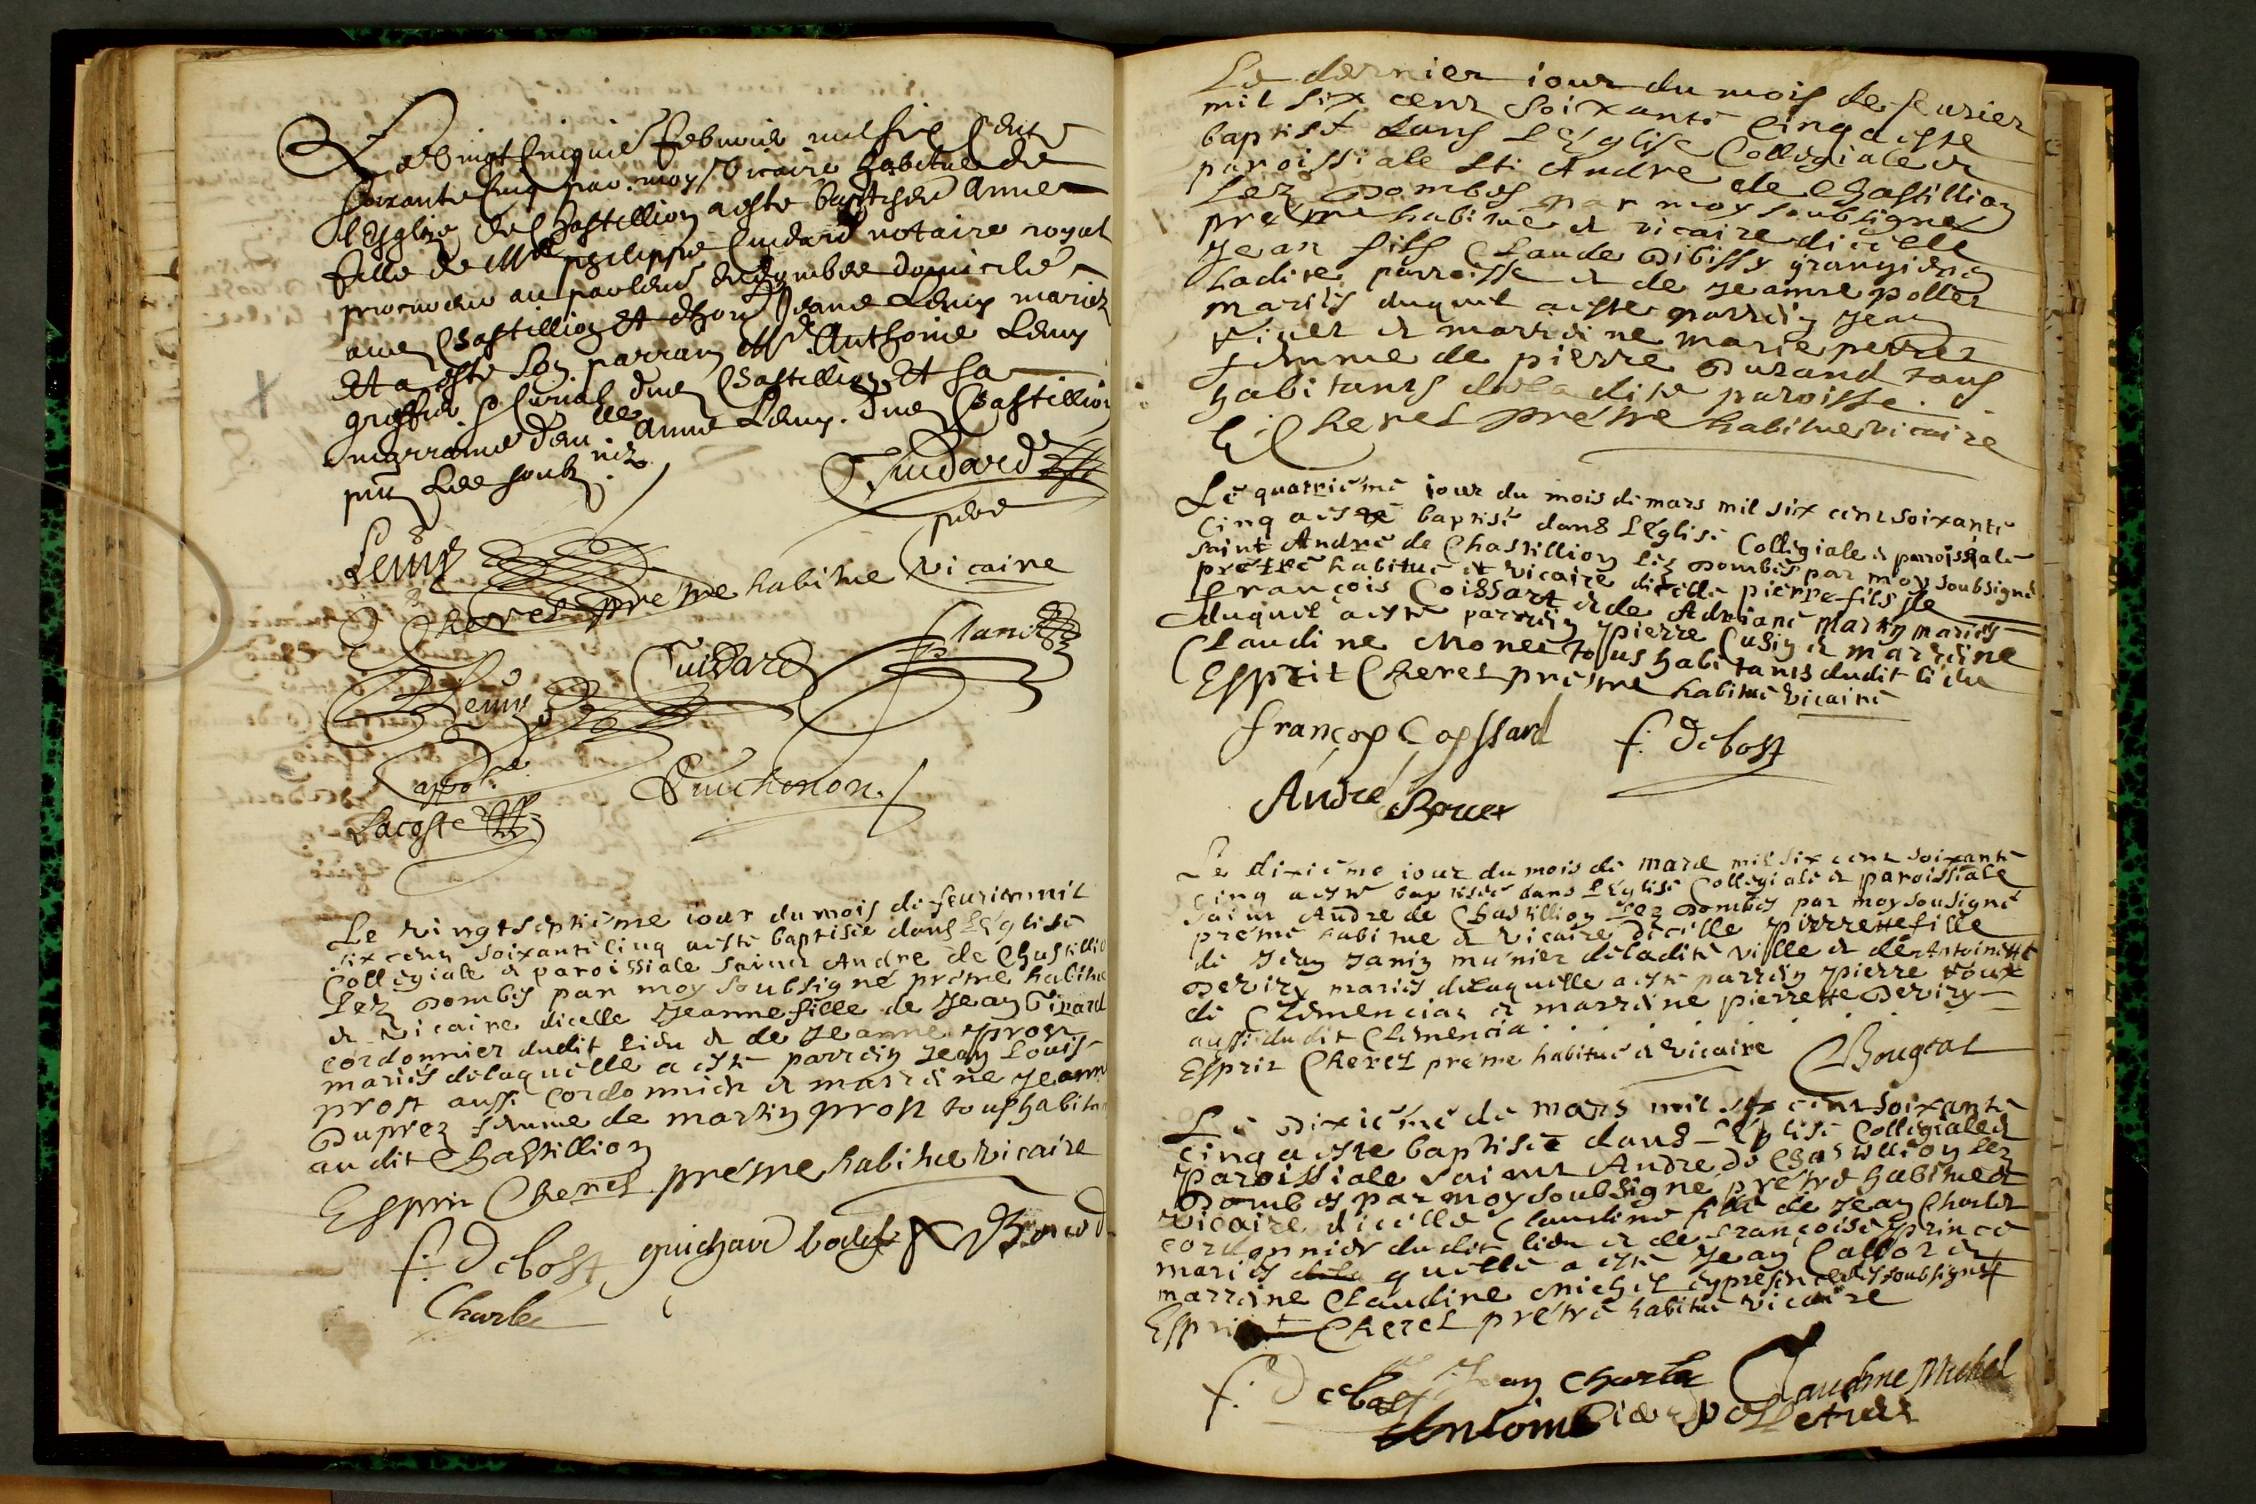 Le vingt cinquie februier mil six cent
soixante cinq par moy vicaire habitue de
l'Esglize de Chastillion a este baptisee Anne
fille de Mre philippe Cuidard notaire royal
procureur au parlemt de Dombes domicilie
aud Chastillion Et d'hon Jeanne Lemy mariez
Et a este son parrain Mre Anthoine Lemy
greffier dud Chastillion Et sa
marraine dam lle Anne Lemy dud Chastillion
pnts Les soubz nez
Cuidard
pere
Lemy
Cheret pretre habitue vicaire
Cuidard
Lemy
Puichonon
Lacoste
Le vingtseptiéme iour du mois de feurier mil
six cens soixante cinq a este baptisée dans L'Eglise
Collegiale et paroissiale saint Andre de Chastillion
Lez Dombes par moy soubsigné pretre habitue
et vicaire dicelle Jeanne fille de Jean Girard
cordonnier dudit lieu et de Jeanne Prost
mariés delaquelle a esté parrein Jean Louis
prost aussi Cordonnier et marreine Jeanne
Duprez femme de martin prost tous habitans
au dit Chastillion
Esprit Cheret pretre habitue vicaire
f. Debost guichard
Charles
Le dernier iour du mois de feurier
mil six cent soixante cinq a este
baptisé dans L'Eglise Collegiale et
paroissiale St Andre de Chastillion
Lez Dombes par moy soubsigné
pretre habitue et vicaire dicelle
Jean fils Claude Dibissy grangier en
Ladite parroisse et de Jeanne pollet
mariés duquel a este parrein Jean
Viuet et marreine marie perret
femme de pierre Durand tous
habitants de la dite paroisse.
E Cheret pretre habitue vicaire
Le quatriéme iour du mois de mars mil six cent soixante
Cinq a este baptisé dans L'église Collegiale et paroissiale
saint André de Chastillion lez Dombes par moy soubsigné
pretre habitué et vicaire dicelle pierre fils de
francois Coissart et de Adriane Martin mariés
duquel a esté parrein pierre Cusin et marreine
Claudine Monet tous habitants dudit lieu
Esprit Cheret pretre habitué vicaire
françois Coyssard f. Debost
André Borret
Le dixiéme iour du mois de mars mil six cent soixante
cinq a este baptisée dans L'Eglise Collegiale et paroissiale
saint Andre de Chastillion Lez Dombes par moy sousigné
pretre habitue et vicaire dicelle Pierrette fille
de Jean Janin munier de ladite ville et de Antoinette
Deviry mariés delaquelle a este parrein Pierre Roux
de Clemencia et marreine pierrette Deviry
aussi dudit Clemencia
Esprit Cheret pretre habitué et vicaire Bougeat
Le Dixiéme de mars mil six cent soixante
cinq a este baptisée dans L'Eglise Collegiale et
Paroissiale saint Andre de Chastillion Lez
Dombes par moy soubsigné pretre habitue et
vicaire dicelle Claudine fille de Jean Charles
cordonnier du dit lieu et de françoise Prince
mariés dela quelle a este Jean Callor et
marreine Claudine Michel cypresents soubsignés
Esprit Cheret pretre habitué vicaire
f. Debost Jean Charles Claudine Michel
Antoine